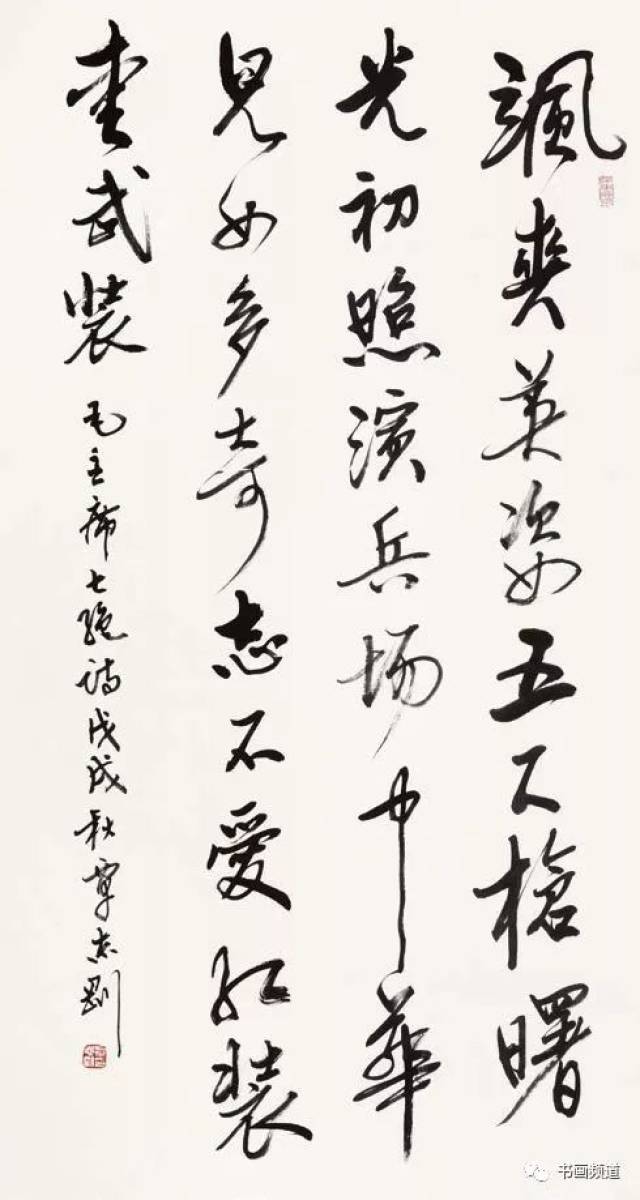 颯爽英姿五尺槍曙
光初照演兵场中華
兒女多奇志不愛红装
愛武装
毛主席七绝诗戊戌秋覃志剛
书画频道